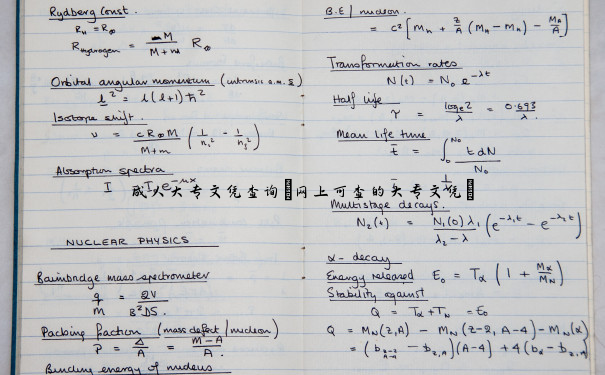 Rydberg Const.
R_H = R_∞
R_Hydrogen = M / (M + m) R_∞
Orbital angular momentum (intrinsic a.m. s)
l² = l(l+1)ħ²
Isotope shift.
ν = cR_∞M / (M+m) (1/n₁² - 1/n₂²)
Absorption spectra
I = I₀e^-μx
NUCLEAR PHYSICS
Bainbridge mass spectrometer
q/m = 2V / B²DS.
Packing fraction (mass defect / nucleon)
P = Δ/A = (M-A)/A.
Binding energy of nucleus
B.E / nucleon.
= c² [M_n + Z/A (M_H - M_n) - M_A/A]
Transformation rates
N(t) = N₀ e^-λt
Half life
τ = log_e 2 / λ = 0.693 / λ.
Mean life time
t̄ = ∫₀^N₀ t dN / N₀
成人大专文凭查询 网上可查的大专文凭
Multistage decays.
N₂(t) = N₁(0)λ₁ / (λ₂ - λ) (e^-λ₁t - e^-λ₂t)
α - decay
Energy released E₀ = T_α (1 + M_α/M_N)
Stability against
Q = T_α + T_N = E₀
Q = M_N(Z,A) - M_N(Z-2, A-4) - M_N(α)